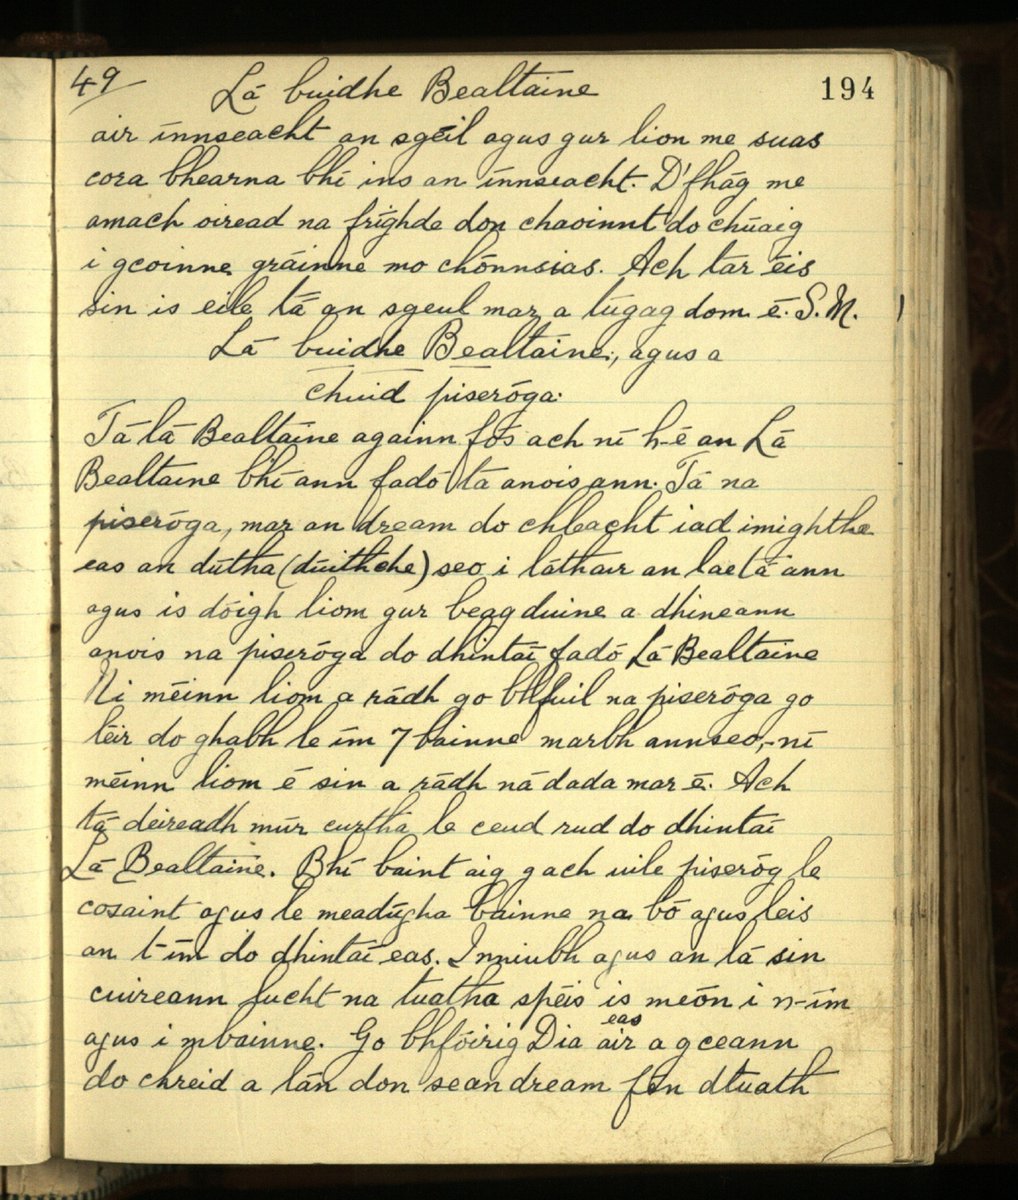 49
Lá buidhe Bealtaine
194
air ínnseacht an sgéil agus gur líon me suas
cora bhearna bhí ins an ínnseacht. D'fhág me
amach oiread na fríghde don chaoinnt do chúaig
i gcoinne gráinne mo chónnsias. Ach tar éis
sin is eile tá an sgeul mar a túgag dom é. S.M.
Lá buidhe Bealtaine, agus a
chuid piseróga:
Tá lá Bealtaine againn fós ach ní h-é an Lá
Bealtaine bhí ann fadó tá anois ann. Tá na
piseróga, mar an dream do chleacht iad imighthe
eas an dútha (dúithche) seo i láthair an lae tá ann
agus is dóigh liom gur beag duine a dhineann
anois na piseróga do dhintaí fadó Lá Bealtaine
Ni méinn liom a rádh go bhfuil na piseróga go
léir do ghabh le ím 7 bainne marbh annseo,- ní
méinn liom é sin a rádh ná dada mar é. Ach
tá deireadh múr curtha le ceud rud do dhintaí
Lá Bealtaine. Bhí baint aig gach uile piseróg le
cosaint agus le meadúgha bainne na bó agus leis
an t-ím do dhintaí eas. Inniubh agus an lá sin
cuireann lucht na tuatha spéis is meón i n-ím
agus i mbainne. Go bhfóirig Dia air eas a gceann
do chreid a lán don sean dream fén dtuath